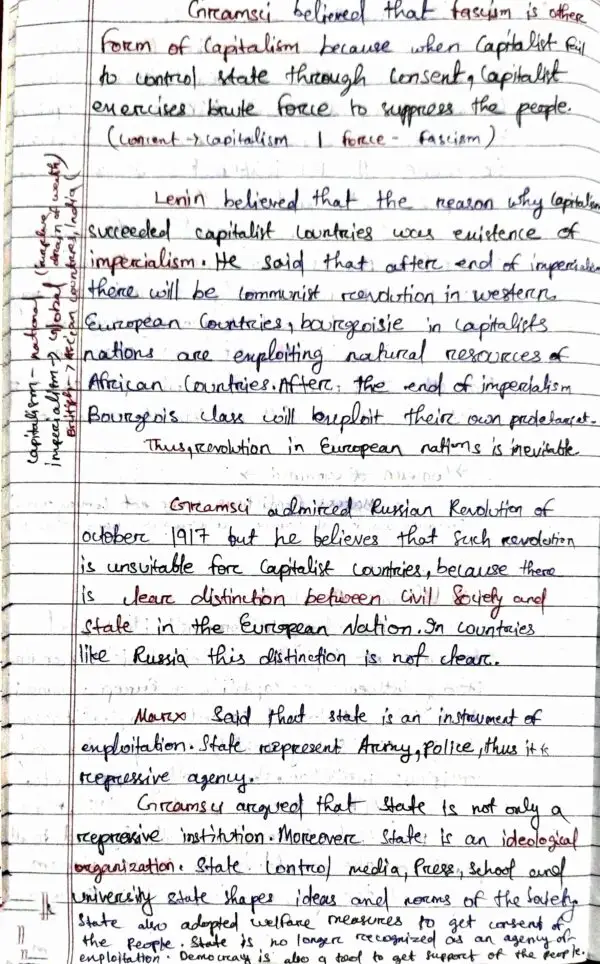 Gramsci believed that fascism is other
form of Capitalism because when Capitalist fail
to control state through consent, Capitalist
exercises brute force to suppress the people.
(concent → capitalism | force - fascism)
Lenin believed that the reason why Capitalism
succeeded capitalist countries was existence of
impercialism. He said that after end of imperialism
there will be communist revolution in western
European Countries, bourgeoisie in Capitalists
nations are exploiting natural resources of
African Countries. After, the end of imperialism
Bourgeois class will exploit their own proletariat.
Thus, revolution in European nations is inevitable
Capitalism - national
imperialism → Global drain of wealth)
British → African countries, India (
Gramsci admired Russian Revolution of
october 1917 but he believes that such revolution
is unsuitable for Capitalist Countries, because there
is clear distinction between Civil Society and
State in the European Nation. In countries
like Russia this distinction is not clear.
Marx Said that state is an instrument of
exploitation. State represent Army, Police, thus it is
repressive agency.
Gramsci argued that State is not only a
repressive institution. Moreover State is an ideological
organization. State Control media, Press, School and
university state shapes ideas and norms of the Society.
State also adopted welfare measures to get consent of
the People. State is no longer recognized as an agency of
exploitation. Democracy is also a tool to get support of the people.